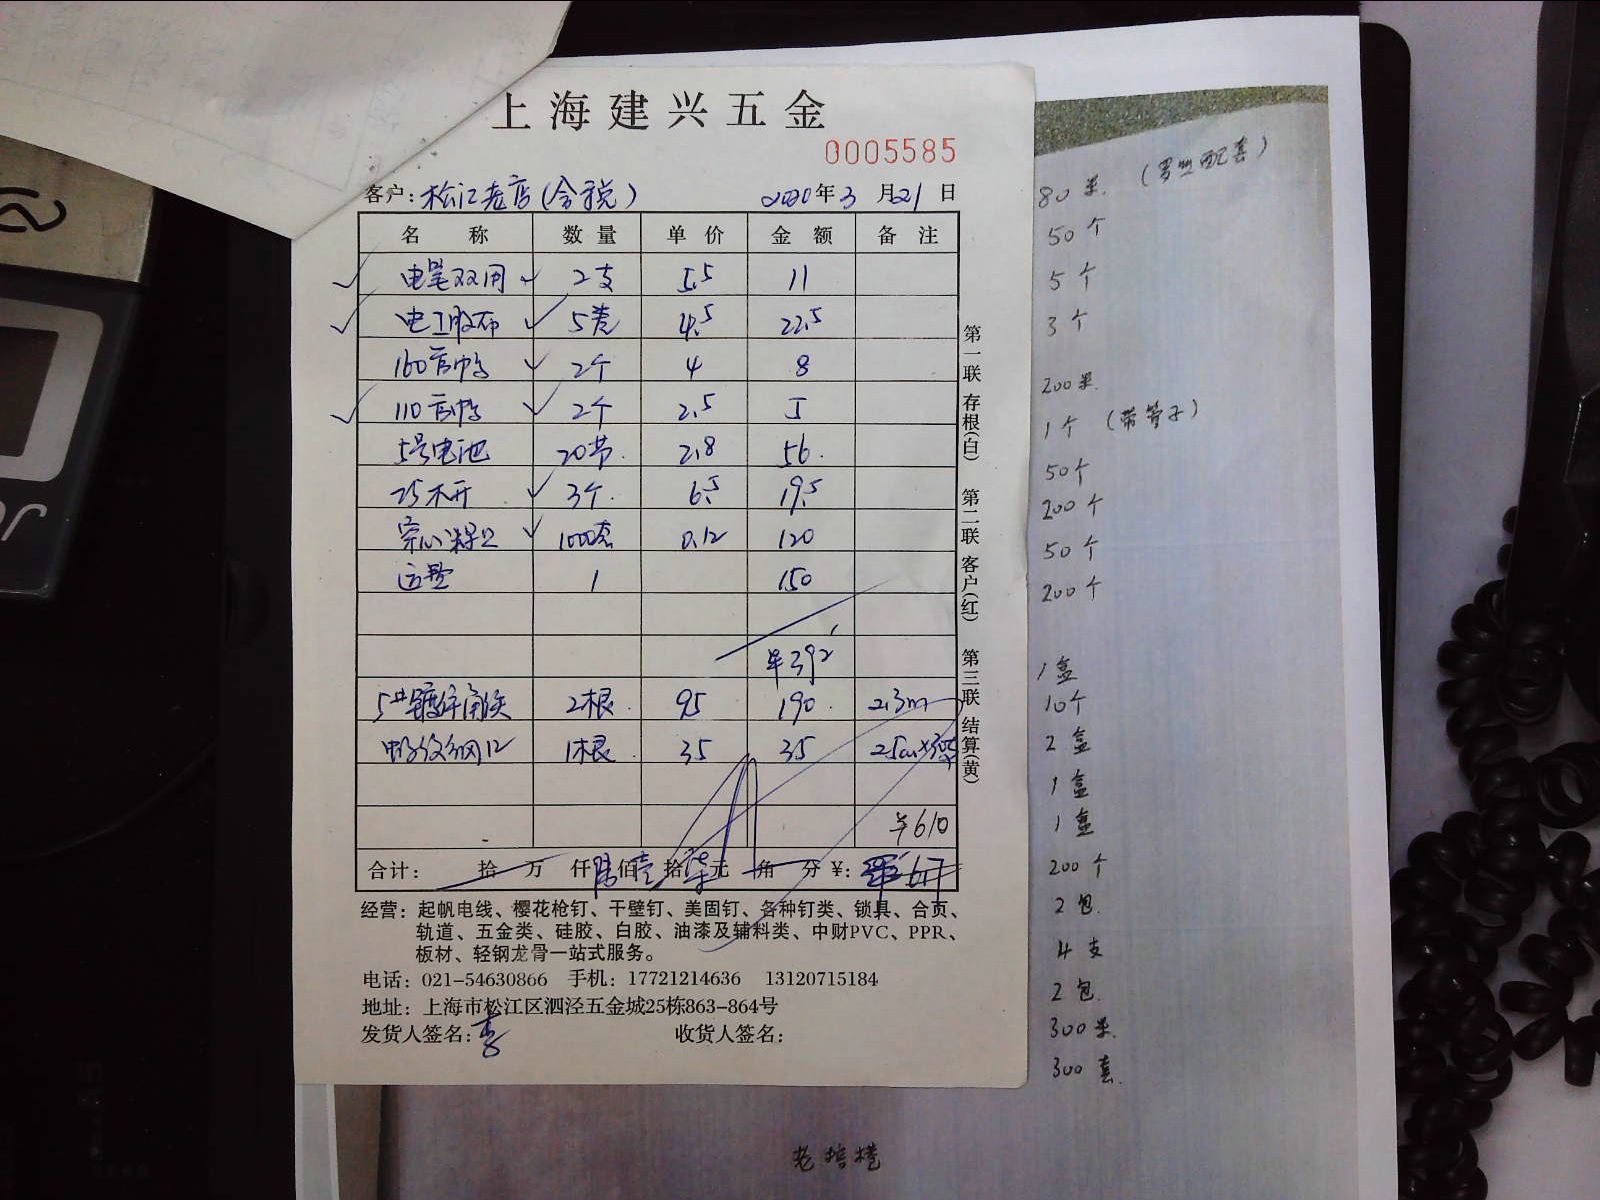 上海建兴五金
0005585
客户：松江老店(含税) 2020年3月21日
名称 数量 单价 金额 备注
电笔双用 2支 5.5 11
电工胶布 5卷 4.5 22.5
160管帽 2个 4 8
110管帽 2个 2.5 5
5号电池 20节 2.8 56
25木开 3个 6.5 19.5
穿心 1000套 0.12 120
运费 1 150
¥392
5#镀锌角铁 2根 95 190 2.3m
纹钢12 1根 35 35 25cm×
¥610
合计： 拾 万 仟陆佰壹拾柒元 角 分 ¥: 617
经营：起帆电线、樱花枪钉、干壁钉、美固钉、各种钉类、锁具、合页、
轨道、五金类、硅胶、白胶、油漆及辅料类、中财PVC、PPR、
板材、轻钢龙骨一站式服务。
电话：021-54630866 手机：17721214636 13120715184
地址：上海市松江区泗泾五金城25栋863-864号
发货人签名：李 收货人签名：
第一联 存根(白) 第二联 客户(红) 第三联 结算(黄)
80米. (男丝配套)
50个
5个
3个
200米.
1个 (带管子)
50个
200个
50个
200个
1盒
10个
2盒
1盒
1盒
200个
2包.
4支
2包.
300米.
300套.
老